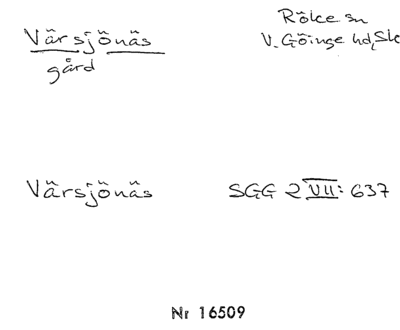 Värsjönäs
gård
Rölke sn
V. Göinge hd, Sk
Värsjönäs
SGG 2 VII: 637
Nr 16509